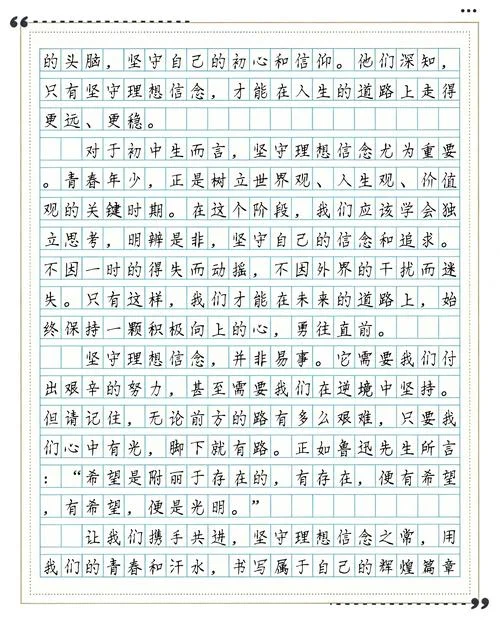 的头脑，坚守自己的初心和信仰。他们深知，
只有坚守理想信念，才能在人生的道路上走得
更远、更稳。
对于初中生而言，坚守理想信念尤为重要
。青春年少，正是树立世界观、人生观、价值
观的关键时期。在这个阶段，我们应该学会独
立思考，明辨是非，坚守自己的信念和追求。
不因一时的得失而动摇，不因外界的干扰而迷
失。只有这样，我们才能在未来的道路上，始
终保持一颗积极向上的心，勇往直前。
坚守理想信念，并非易事。它需要我们付
出艰辛的努力，甚至需要我们在逆境中坚持。
但请记住，无论前方的路有多么艰难，只要我
们心中有光，脚下就有路。正如鲁迅先生所言
：“希望是附丽于存在的，有存在，便有希望
，有希望，便是光明。”
让我们携手共进，坚守理想信念之常，用
我们的青春和汗水，书写属于自己的辉煌篇章